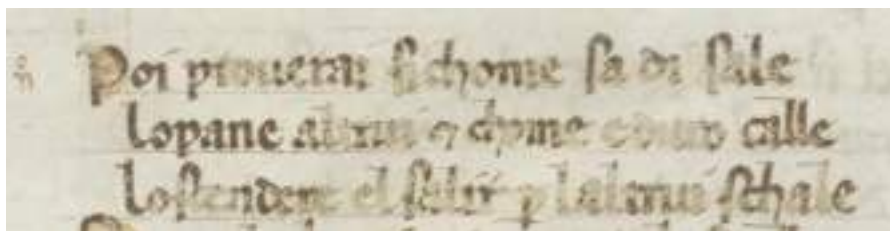 Poi prouerai si chome sa di sale
lopane altrui ⁊ chome eduro calle
loscendere el salir p lalatrui schale